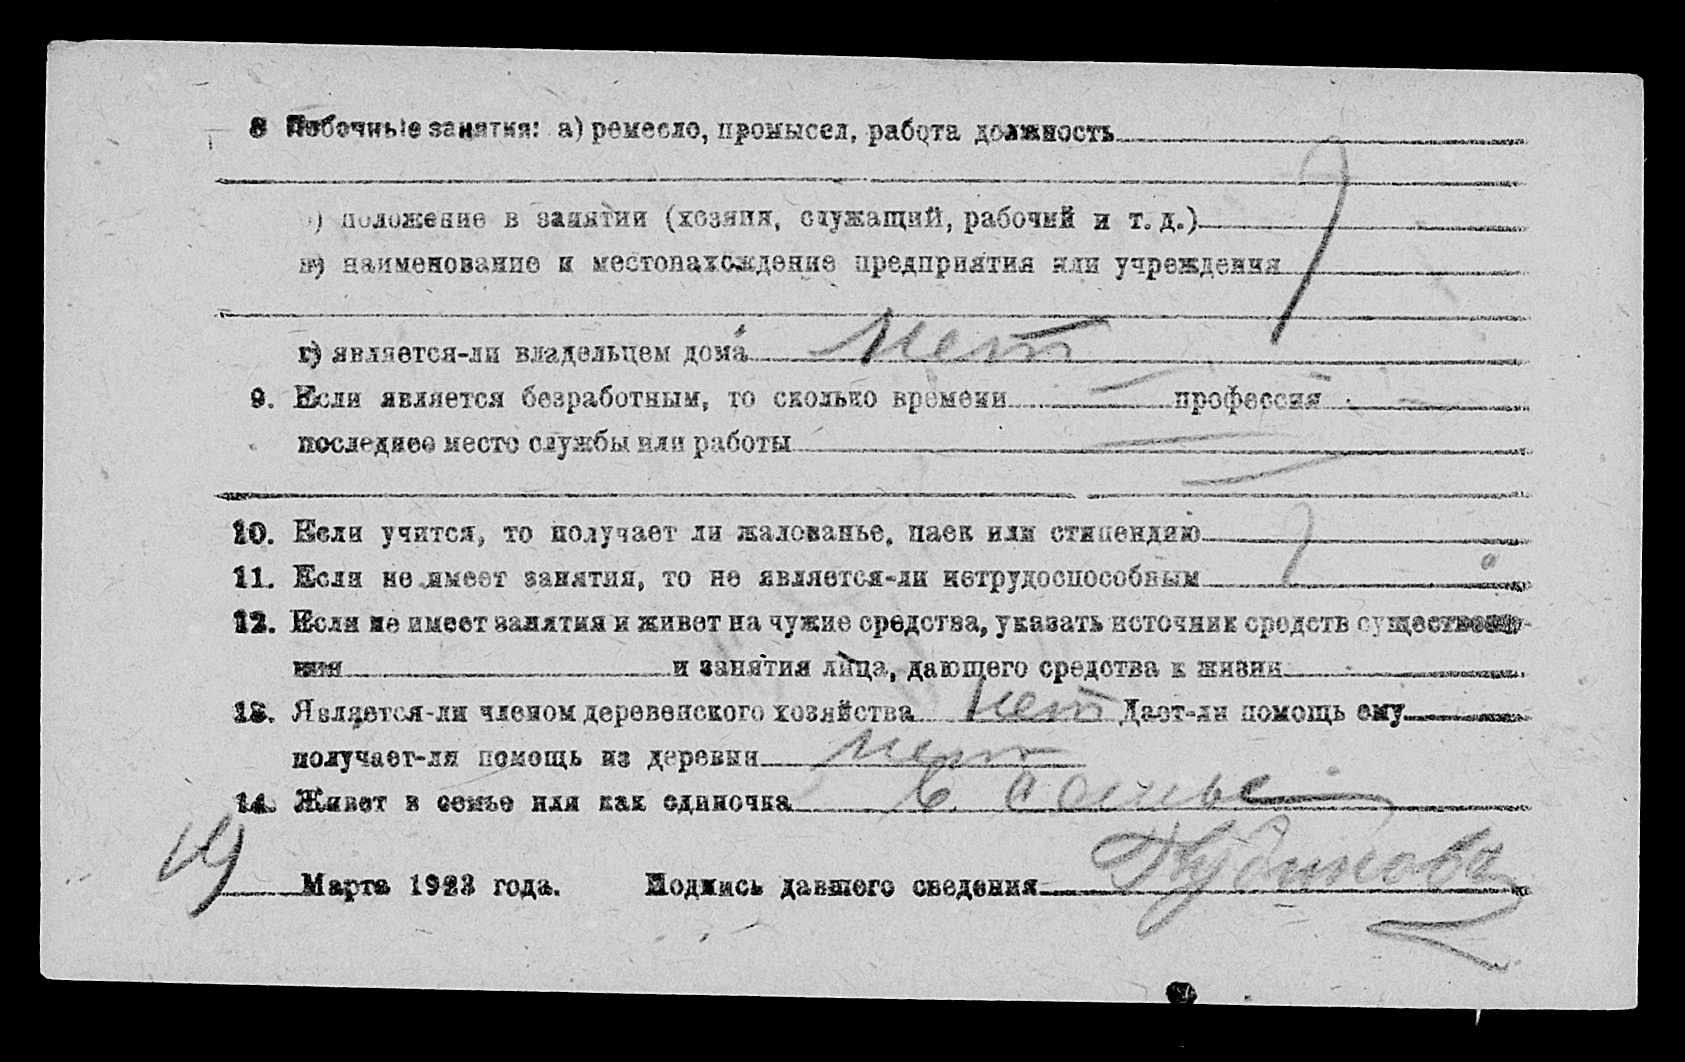 8 Побочные занятия: а) ремесло, промысел, работа должность
б) положение в занятии (хозяин, служащий, рабочий и т. д.)
в) наименование и местонахождение предприятия или учреждения
г) является-ли владельцем дома нет
9. Если является безработным, то сколько времени — профессия —
последнее место службы или работы —
10. Если учится, то получает ли жалованье, паек или стипендию
11. Если не имеет занятия, то не является-ли нетрудоспособным
12. Если не имеет занятия и живет на чужие средства, указать источник средств существова-
ния и занятия лица, дающего средства к жизни
13. Является-ли членом деревенского хозяйства нет Дает-ли помощь ему
получает-ли помощь из деревни нет
14. Живет в семье или как одиночка в семье
19 Марта 1923 года. Подпись давшего сведения